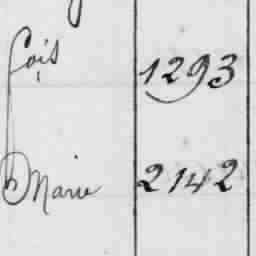 Cois 1293
Marie 2142